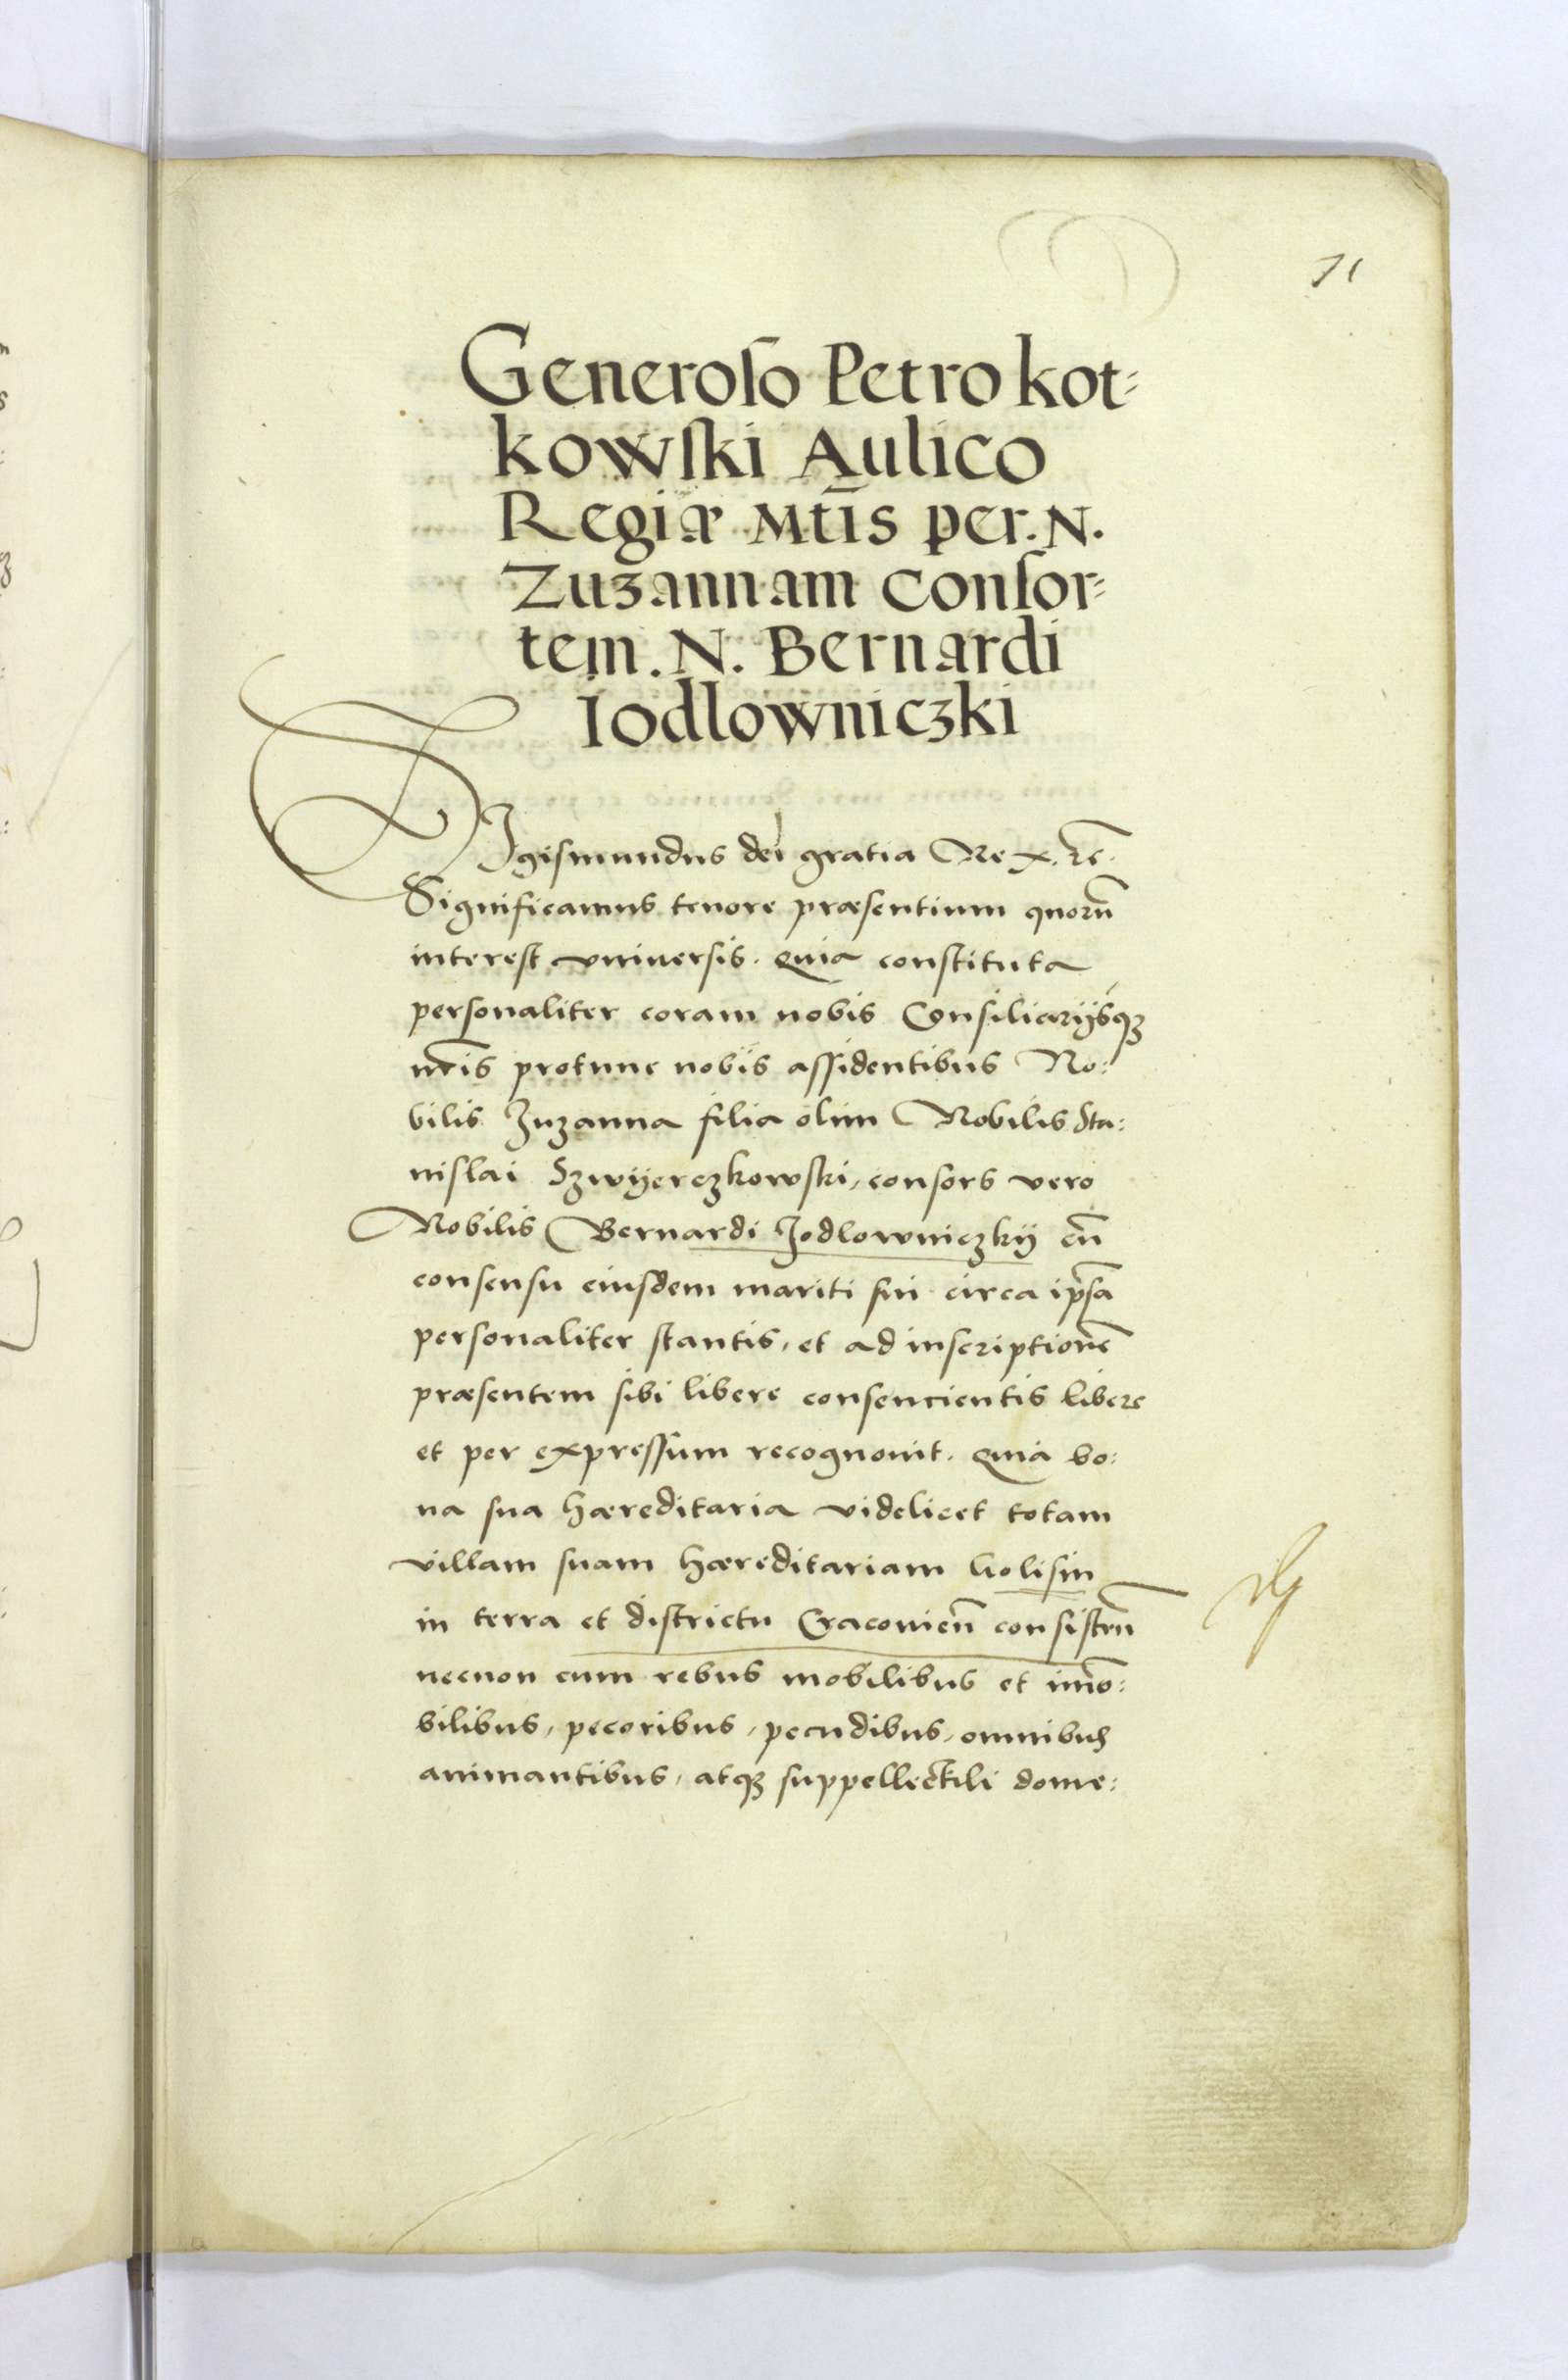 71
Generoso Petro kot=
kowski Aulico
Regiæ Mtis per. N.
Zuzannam Consor=
tem. N. Bernardi
Iodlowniczki
SIgismundus dei gratia Rex. etc.
Significamus tenore præsentium quorū
interest vniuersis. Quia constituta
personaliter coram nobis Consiliarijsq3
nr̄is protunc nobis assidentibus No:
bilis Zuzanna filia olim Nobilis Sta:
nislai Szwyerczkowski, consors vero
Nobilis Bernardi Jodlowniczkij cū
consensu eiusdem mariti sui circa ip̄sā
personaliter stantis, et ad inscriptionē
præsentem sibi libere consencientis libere
et per expressum recognouit. Quia bo:
na sua hæreditaria videlicet totam
villam suam hæreditariam Wolisin
in terra et districtu Cracouien̄ consisten̄
necnon cum rebus mobilibus et im̄o:
bilibus, pecoribus, pecudibus, omnibus
animantibus, atq3 suppellectili dome: